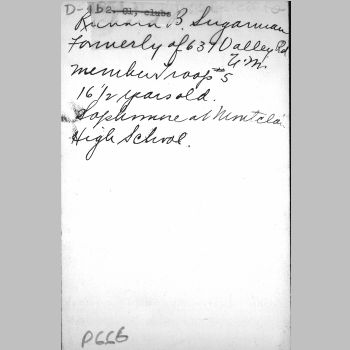 D-162. cl, clubs
Richard B. Sugarman
Formerly of 639 Valley Rd
U.M.
member Troop #5
16 1/2 years old.
Sophomore at Montclair
High School.
P666